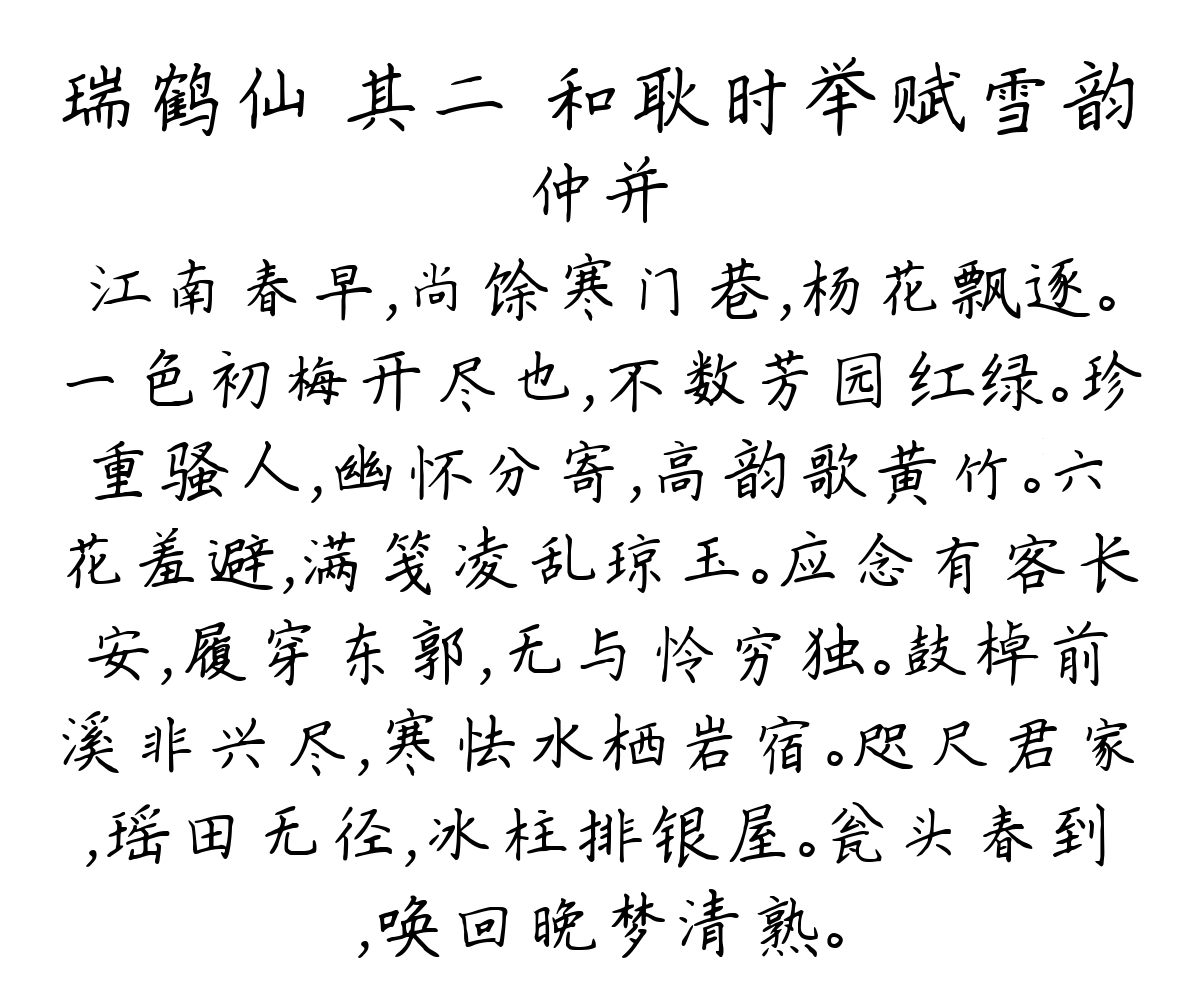 瑞鹤仙 其二 和耿时举赋雪韵
仲并
江南春早,尚馀寒门巷,杨花飘逐。
一色初梅开尽也,不数芳园红绿。珍
重骚人,幽怀分寄,高韵歌黄竹。六
花羞避,满笺凌乱琼玉。应念有客长
安,履穿东郭,无与怜穷独。鼓棹前
溪非兴尽,寒怯水栖岩宿。咫尺君家
,瑶田无径,冰柱排银屋。瓮头春到
,唤回晚梦清熟。